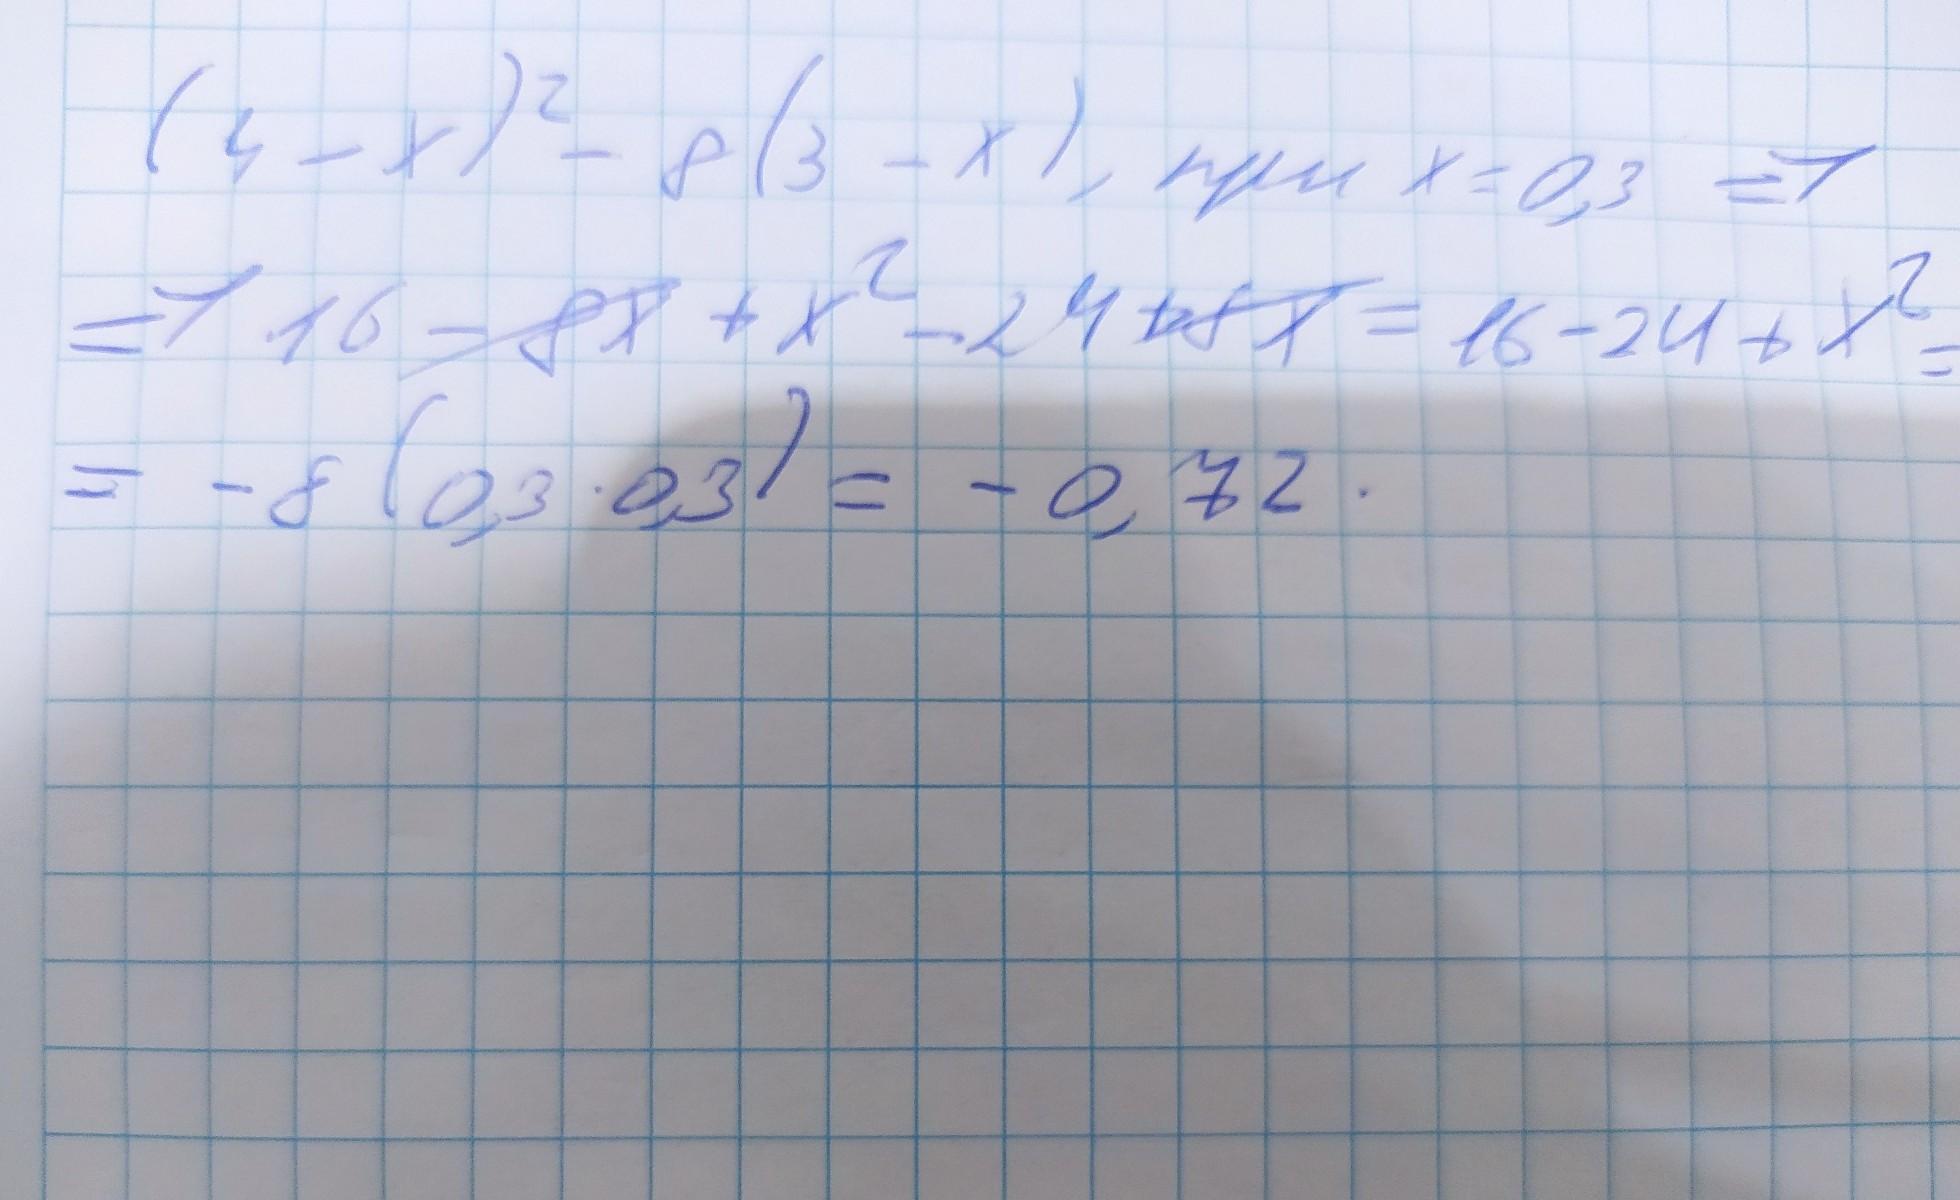 (4-x)² - 8(3-x), при x=0,3 =>
=> 16 - 8x + x² - 24 + 8x = 16 - 24 + x² =
= -8(0,3·0,3) = -0,72.